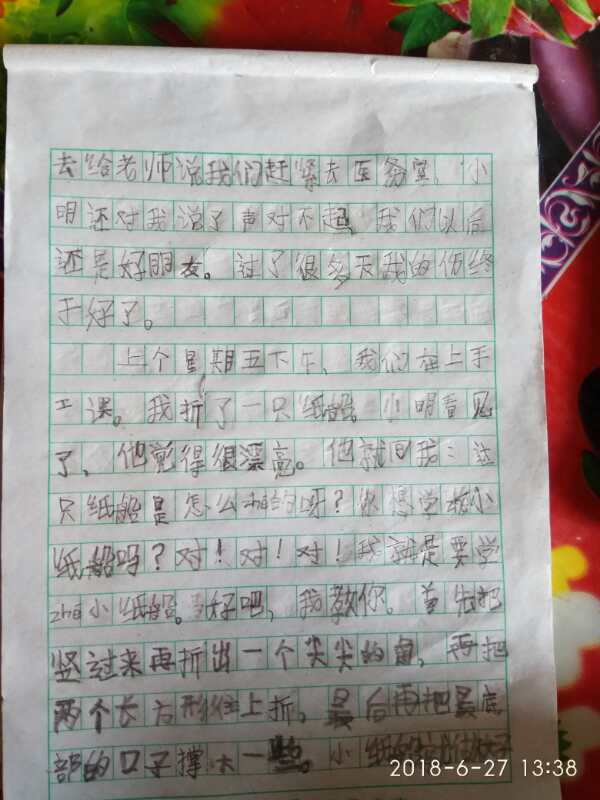 去给老师说我们赶紧去医务室，小
明还对我说了声对不起，我们以后
还是好朋友。过了很多天我的伤终
于好了。
上个星期五下午，我们在上手
工课。我折了一只纸船。小明看见
了，他觉得很漂亮。他就问我：这
只纸船是怎么zhé的呀？你想学折小
纸船吗？对！对！对！我就是要学
zhé小纸船。好吧，我教你。首先把
竖过来再折出一个尖尖的角，再把
两个长方形往上折，最后再把最底
部的口子撑大一些。小纸船
2018-6-27 13:38